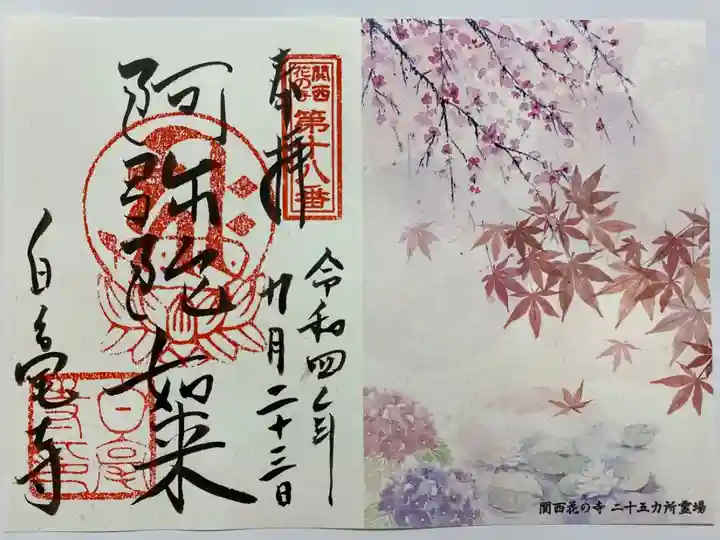 奉拝
関西
花の寺
第十八番
阿弥陀如来
令和四年
月二十三日
白毫寺
関西花の寺 二十五カ所霊場